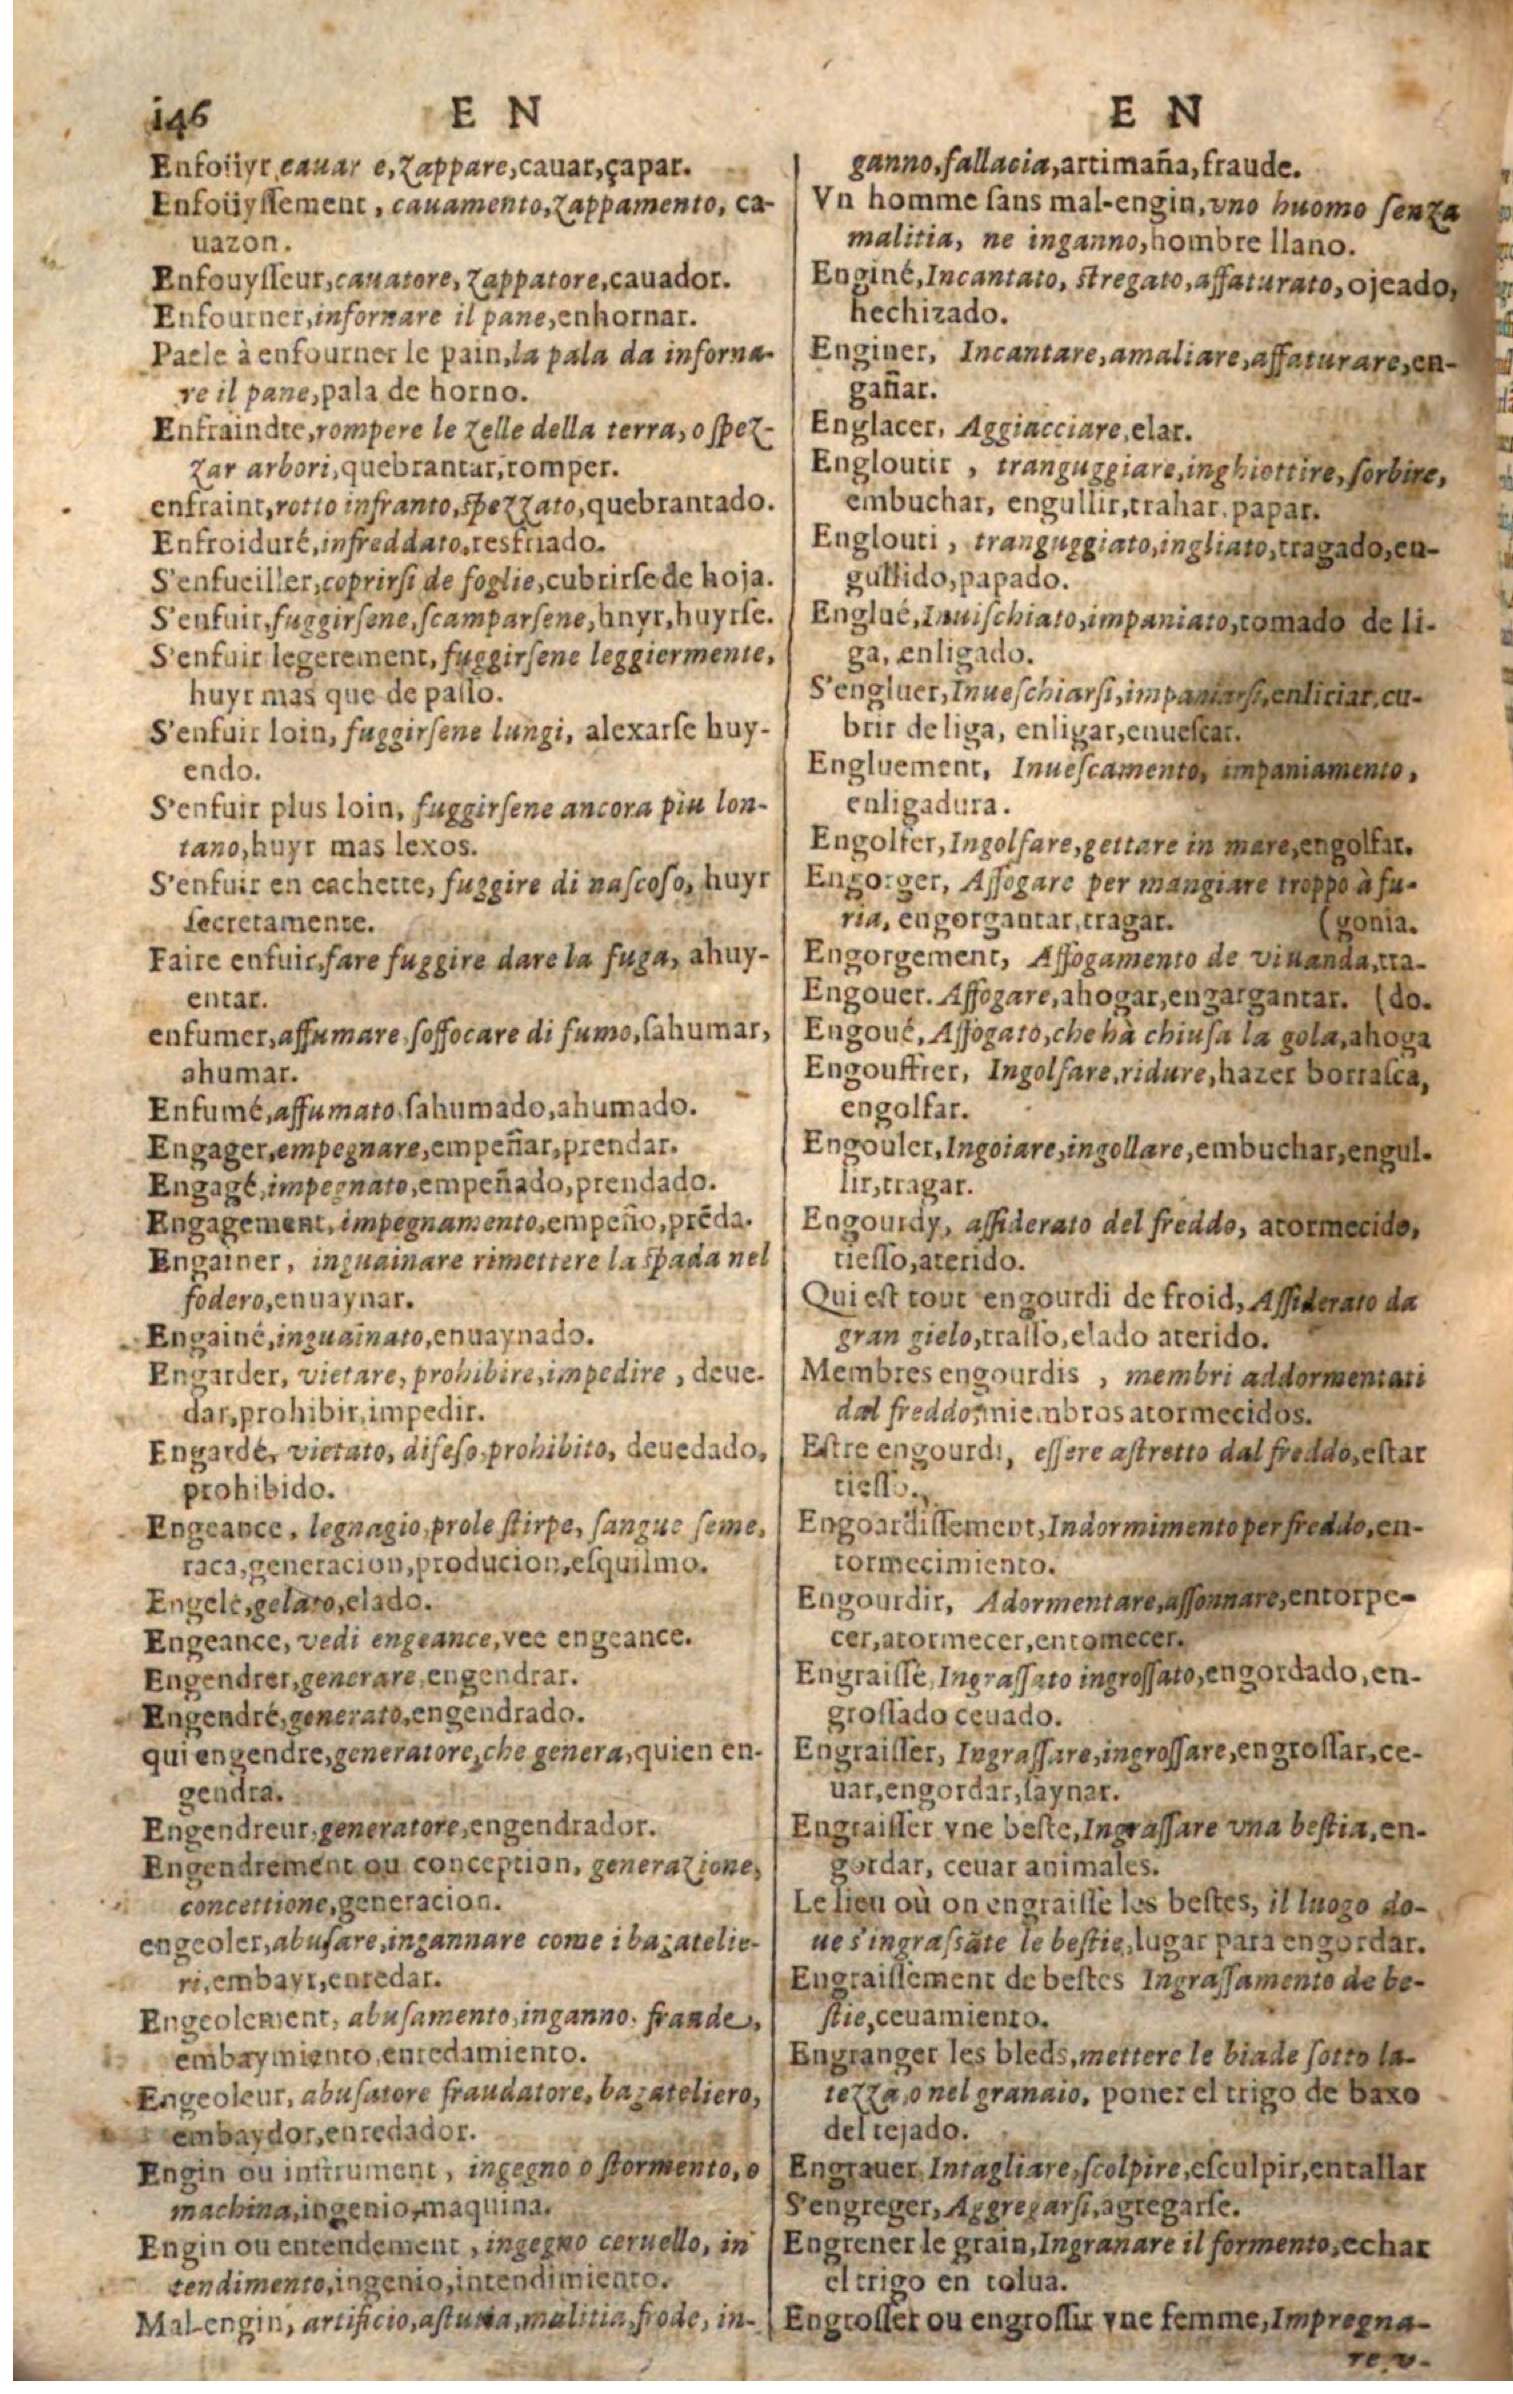 146 E N
Enfoüyr, cauar e, zappare, cauar, çapar.
Enfoüyssement, cauamento, zappamento, ca-
uazon.
Enfouysseur, cauatore, zappatore, cauador.
Enfourner, infornare il pane, enhornar.
Paele à enfourner le pain, la pala da inforna-
re il pane, pala de horno.
Enfraindre, rompere le zelle della terra, o spez-
zar arbori, quebrantar, romper.
enfraint, rotto infranto, spezzato, quebrantado.
Enfroiduré, infreddato, resfriado.
S'enfueiller, coprirsi de foglie, cubrirse de hoja.
S'enfuir, fuggirsene, scamparsene, hnyr, huyrse.
S'enfuir legerement, fuggirsene leggiermente,
huyr mas que de passo.
S'enfuir loin, fuggirsene lungi, alexarse huy-
endo.
S'enfuir plus loin, fuggirsene ancora piu lon-
tano, huyr mas lexos.
S'enfuir en cachette, fuggire di nascoso, huyr
secretamente.
Faire enfuir, fare fuggire dare la fuga, ahuy-
entar.
enfumer, affumare soffocare di fumo, sahumar,
ahumar.
Enfumé, affumato, sahumado, ahumado.
Engager, empegnare, empeñar, prendar.
Engagé, impegnato, empeñado, prendado.
Engagement, impegnamento, empeño, prẽda.
Engainer, inguainare rimettere la spada nel
fodero, enuaynar.
Engainé, inguainato, enuaynado.
Engarder, vietare, prohibire, impedire, deue-
dar, prohibir, impedir.
Engardé, vietato, difeso, prohibito, deuedado,
prohibido.
Engeance, legnagio, prole stirpe, sangue seme,
raca, generacion, producion, esquilmo.
Engelé, gelato, elado.
Engeance, vedi engeance, vee engeance.
Engendrer, generare, engendrar.
Engendré, generato, engendrado.
qui engendre, generatore, che genera, quien en-
gendra.
Engendreur, generatore, engendrador.
Engendrement ou conception, generazione,
concettione, generacion.
engeoler, abusare, ingannare come i bagatelie-
ri, embayr, enredar.
Engeolement, abusamento, inganno, fraude,
embaymiento, enredamiento.
Engeoleur, abusatore fraudatore, bagateliero,
embaydor, enredador.
Engin ou instrument, ingegno o stormento, o
machina, ingenio, maquina.
Engin ou entendement, ingegno ceruello, in
tendimento, ingenio, intendimiento.
Mal-engin, artificio, astutia, malitia, frode, in-
E N
ganno, fallacia, artimaña, fraude.
Vn homme sans mal-engin, vno huomo senza
malitia, ne inganno, hombre llano.
Enginé, Incantato, stregato, affaturato, ojeado,
hechizado.
Enginer, Incantare, amaliare, affaturare, en-
gañar.
Englacer, Aggiacciare, elar.
Engloutir, tranguggiare, inghiottire, sorbire,
embuchar, engullir, trahar, papar.
Englouti, tranguggiato, ingliato, tragado, en-
gullido, papado.
Englué, Inuischiato, impaniato, tomado de li-
ga, enligado.
S'engluer, Inueschiarsi, impaniarsi, enliciar, cu-
brir de liga, enligar, enuescar.
Engluement, Inuescamento, impaniamento,
enligadura.
Engolfer, Ingolfare, gettare in mare, engolfar.
Engorger, Affogare per mangiare troppo à fu-
ria, engorgantar, tragar. (gonia.
Engorgement, Affogamento de viuanda, tra-
Engouer. Affogare, ahogar, engargantar. (do.
Engoué, Affogato, che hà chiusa la gola, ahoga
Engouffrer, Ingolfare, ridure, hazer borrasca,
engolfar.
Engouler, Ingoiare, ingollare, embuchar, engul-
lir, tragar.
Engourdy, assiderato del freddo, atormecido,
tiesso, aterido.
Qui est tout engourdi de froid, Assiderato da
gran gielo, trasso, elado aterido.
Membres engourdis, membri addormentati
dal freddo, miembros atormecidos.
Estre engourdi, essere astretto dal freddo, estar
tiesso.
Engourdissement, Indormimento per freddo, en-
tormecimiento.
Engourdir, Adormentare, assonnare, entorpe-
cer, atormecer, entomecer.
Engraissé, Ingrassato ingrossato, engordado, en-
grossado ceuado.
Engraisser, Ingrassare, ingrossare, engrossar, ce-
uar, engordar, saynar.
Engraisser vne beste, Ingrassare vna bestia, en-
gordar, ceuar animales.
Le lieu où on engraisse les bestes, il luogo do-
ue s'ingrassãte le bestie, lugar para engordar.
Engraissement de bestes Ingrassamento de be-
stie, ceuamiento.
Engranger les bleds, mettere le biade sotto la-
tezza, o nel granaio, poner el trigo de baxo
del tejado.
Engrauer, Intagliare, scolpire, esculpir, entallar
S'engreger, Aggregarsi, agregarse.
Engrener le grain, Ingranare il formento, echar
el trigo en tolua.
Engrosser ou engrossir vne femme, Impregna-
re, v-